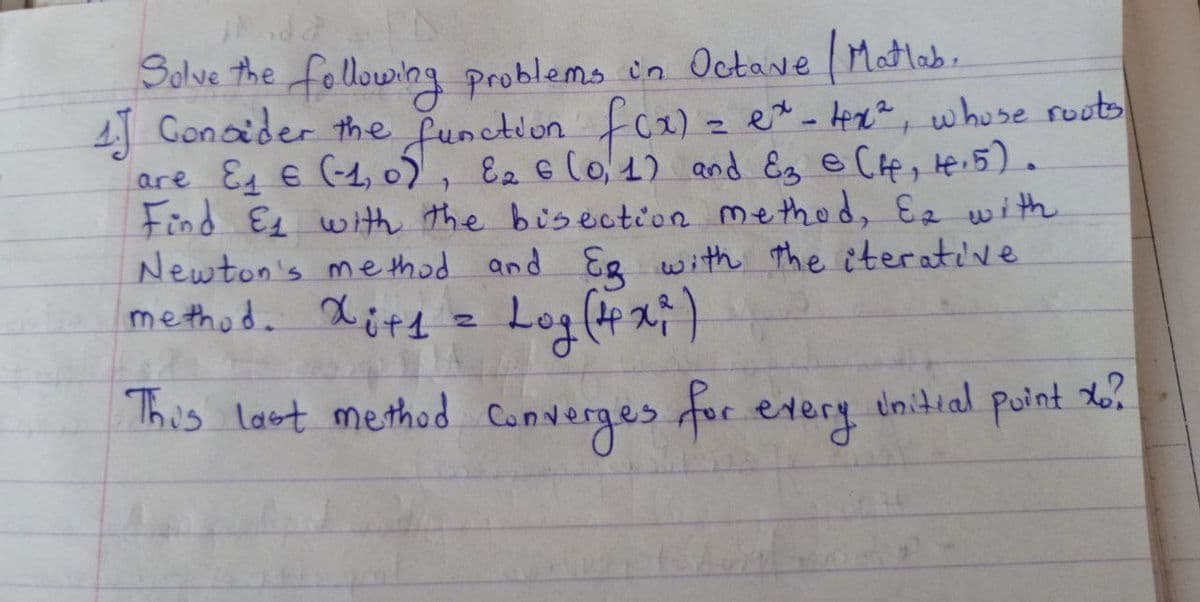 Solve the following problems in Octave / Matlab.
1.] Consider the function f(x) = eˣ - 4x², whose roots
are ξ1 ∈ (-1, 0), ξ2 ∈ (0, 1) and ξ3 ∈ (4, 4.5).
Find ξ1 with the bisection method, ξ2 with
Newton's method and ξ3 with the iterative
method. xᵢ₊₁ = Log(4xᵢ²)
This last method converges for every initial point x₀?